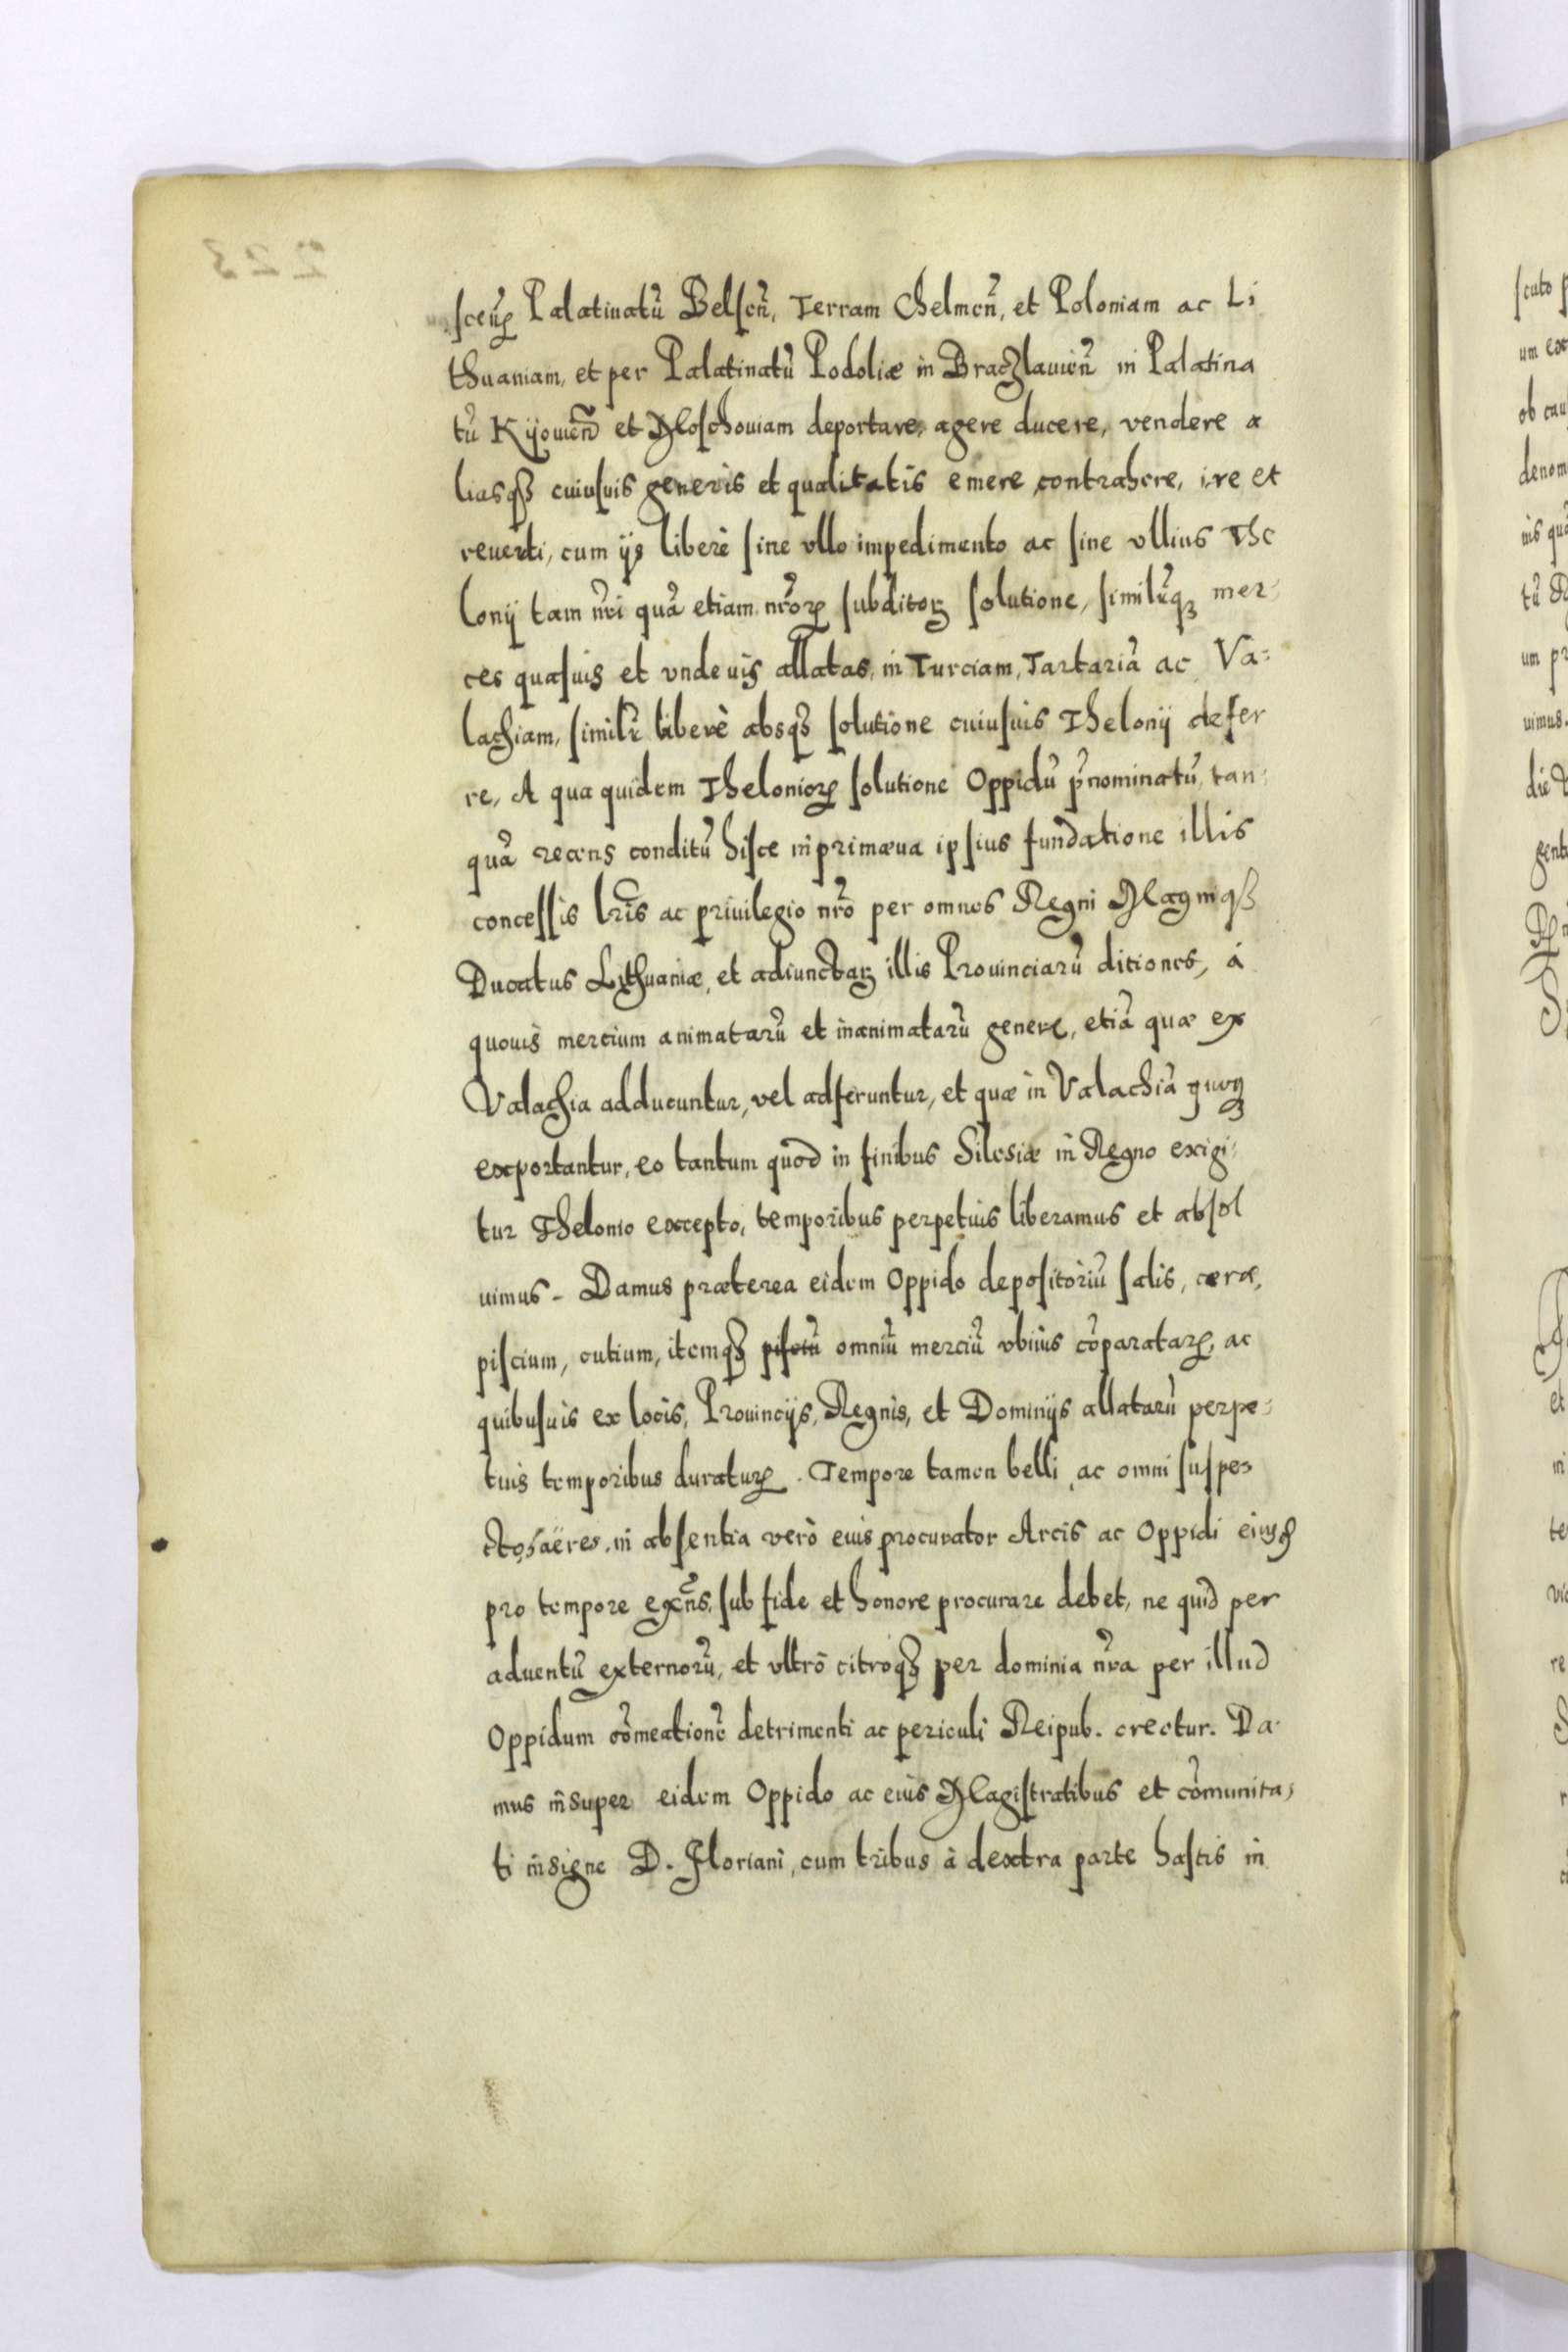 Palatinatũ Belscñ, Terram Chelmcñ, et Poloniam ac Li
thuaniam, et per Palatinatũ Podoliæ in Braczlauieñ in Palatina
tũ Kijouieñ et Moschouiam deportare, agere ducere, vendere a
liasqꝫ cuiusuis generis et qualitatis emere contrahere, ire et
reuerti, cum ijs liberè sine vllo impedimento ac sine vllius The
lonij tam nr̃i quã etiam nr̃oꝝ subditoꝝ solutione, simil'rqꝫ mer-
ces quasuis et vndeuis allatas, in Turciam, Tartariã ac Va-
lachiam, simil'r liberè absqꝫ solutione cuiusuis Thelonij defer
re, A qua quidem Thelonioꝝ solutione Oppidũ p̃nominatũ, tan-
quã recens conditũ hisce in primæua ipsius fundatione illis
concessis lr̃is ac priuilegio nr̃o per omnes Regni Magniqꝫ
Ducatus Lithuaniæ, et adiunctaꝝ illis Prouinciarũ ditiones, à
quouis mercium animatarũ et inanimatarũ genere, etiã quæ ex
Valachia adducuntur, vel adferuntur, et quæ in Valachiã
exportantur, eo tantum quod in finibus Silesiæ in Regno exigi-
tur Thelonio excepto, temporibus perpetuis liberamus et absol
uimus - Damus præterea eidem Oppido depositoriũ salis, ceræ,
piscium, cutium, itemqꝫ pisciũ omniũ merciũ vbiuis cõparataꝝ, ac
quibusuis ex locis, Prouincijs, Regnis, et Dominijs allatarũ perpe-
tuis temporibus duraturꝝ. Tempore tamen belli, ac omni suspe-
cto, hæres, in absentia verò eius procurator Arcis ac Oppidi
pro tempore exñs, sub fide et honore procurare debet, ne quid per
aduentũ externorũ, et vltrò citroqꝫ per dominia nr̃a per illud
Oppidum cõmeationẽ detrimenti ac periculi Reipub. crectur. Da-
mus insuper eidem Oppido ac eius Magistratibus et cõmunita-
ti insigne D. Floriani, cum tribus à dextra parte hastis in